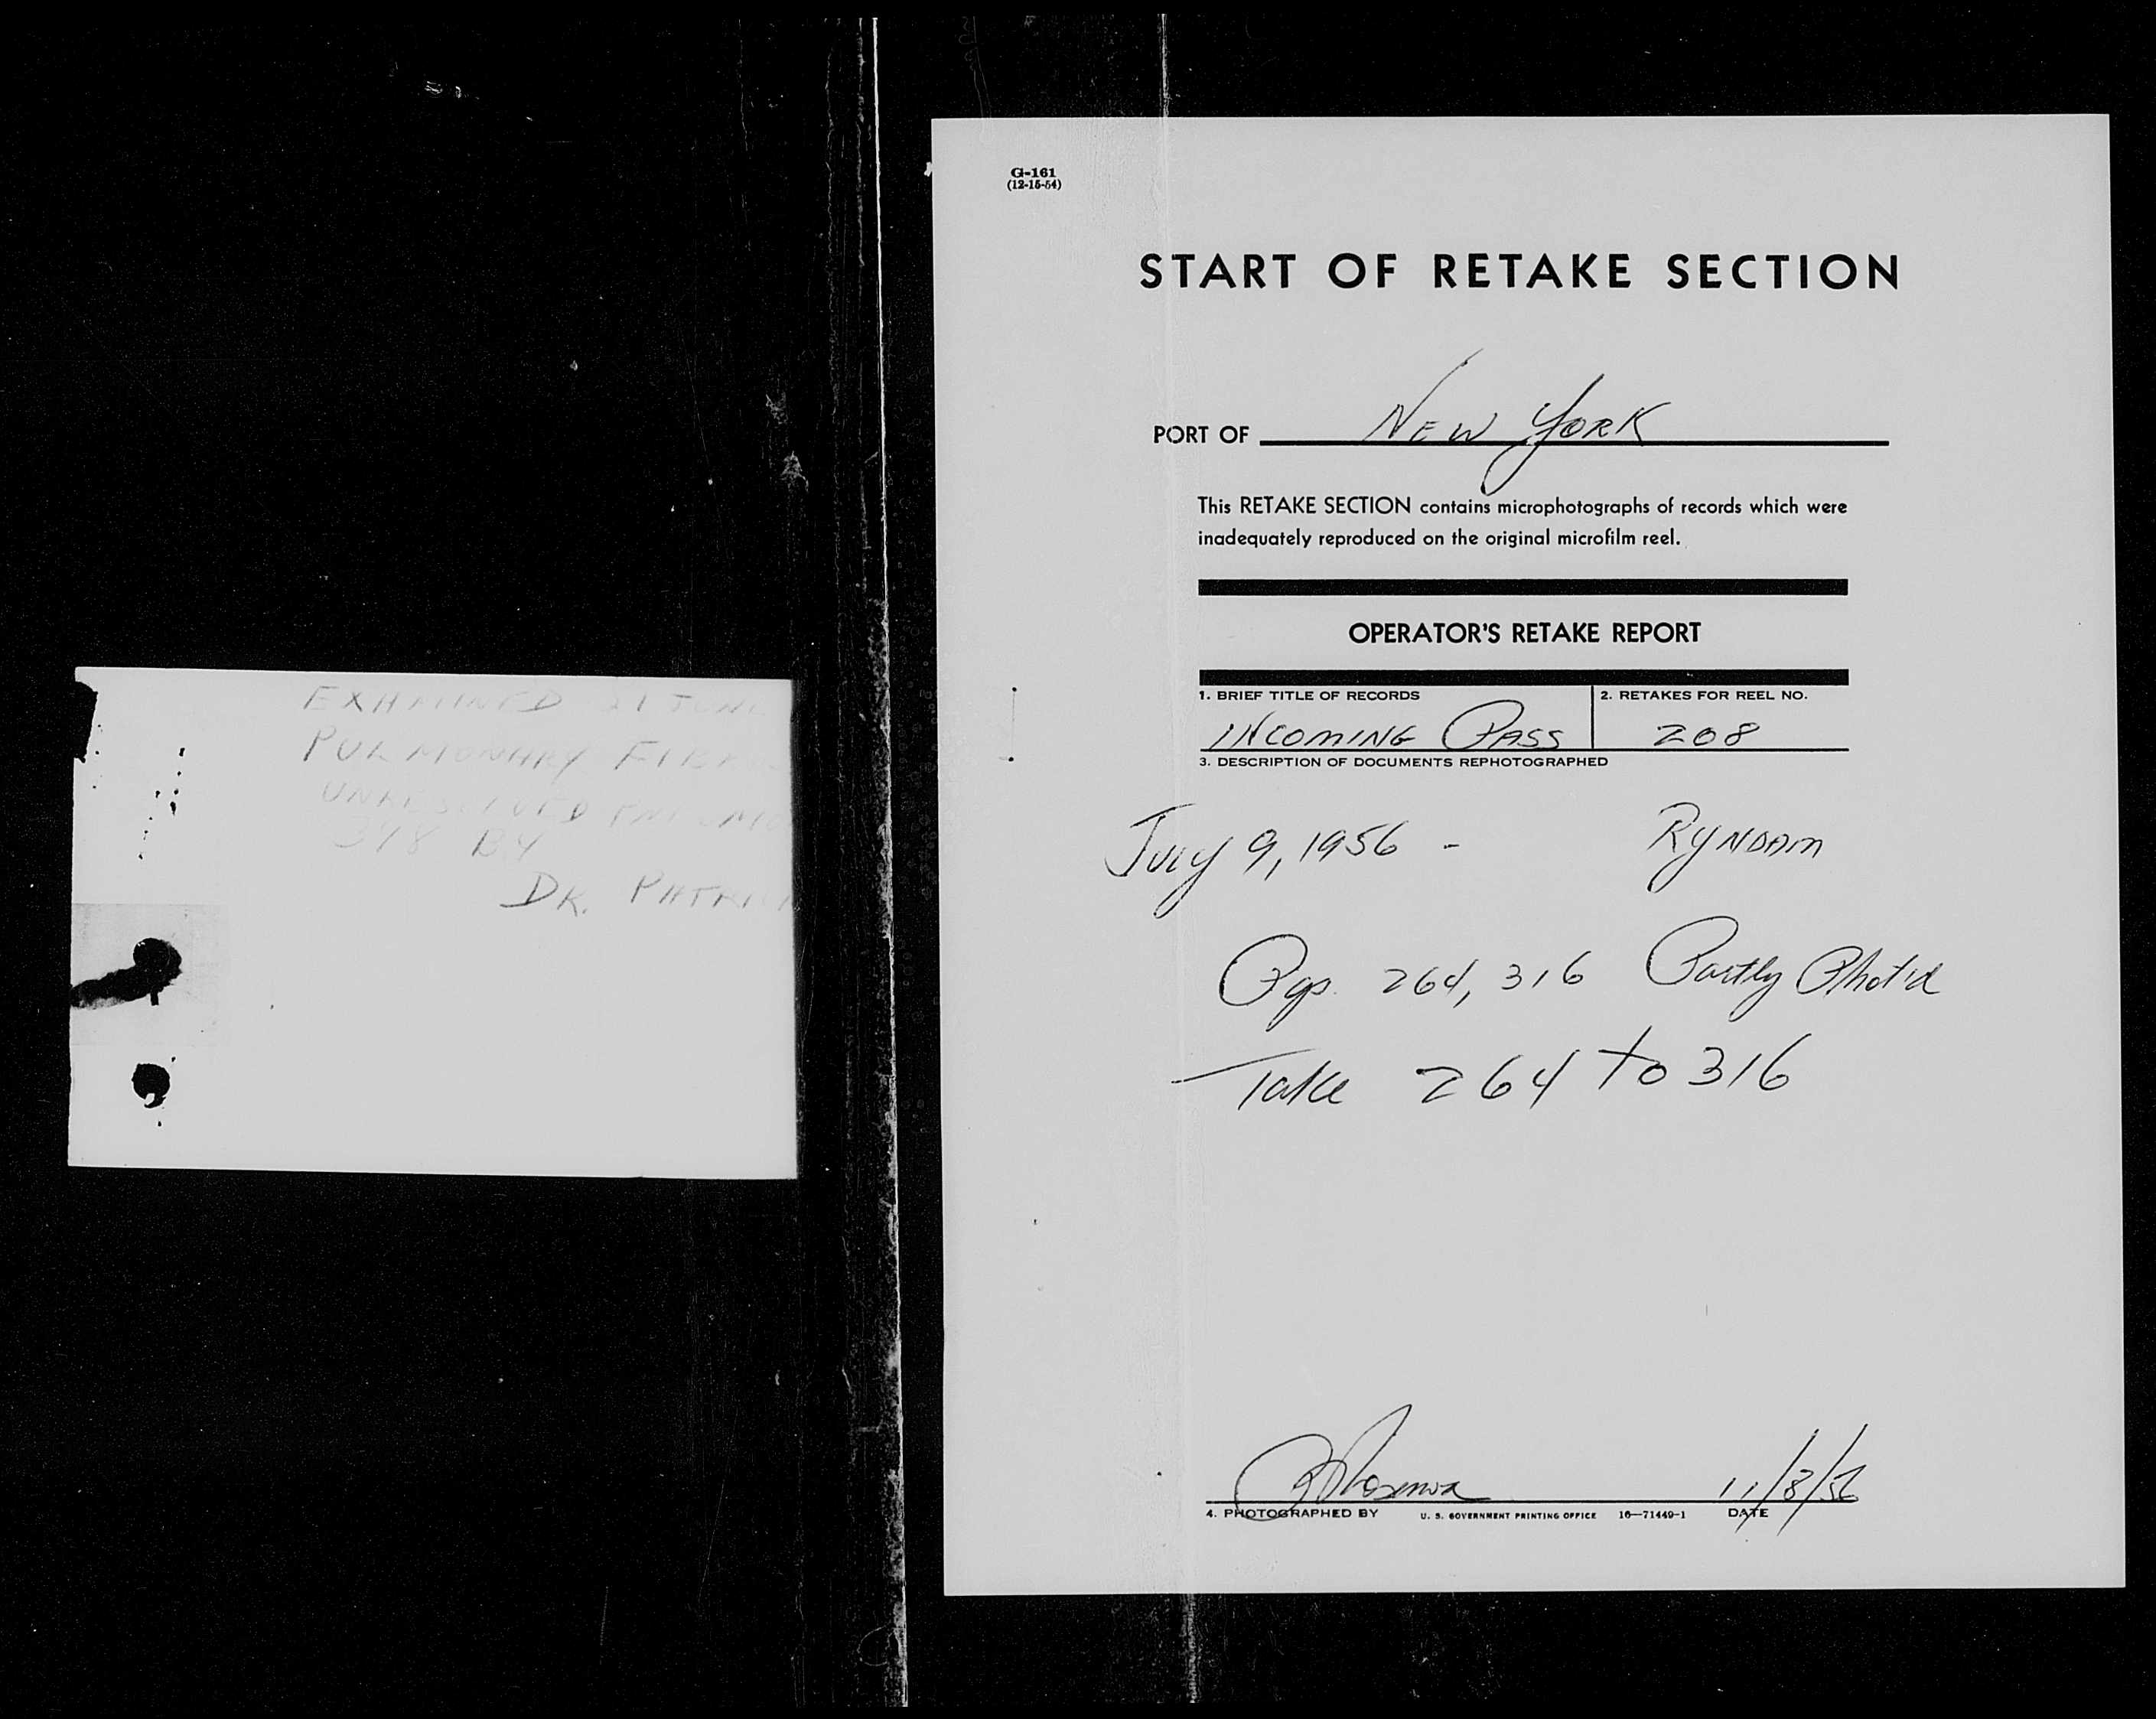 EXAMINED 21 JUNE
PULMONARY
UNRESOLVED
318 BY
DR.
G-161
(12-15-54)
START OF RETAKE SECTION
PORT OF NEW YORK
This RETAKE SECTION contains microphotographs of records which were
inadequately reproduced on the original microfilm reel.
OPERATOR'S RETAKE REPORT
1. BRIEF TITLE OF RECORDS 2. RETAKES FOR REEL NO.
INCOMING PASS 208
3. DESCRIPTION OF DOCUMENTS REPHOTOGRAPHED
July 9, 1956 - RYNDAM
Pgs. 264, 316 Partly Phot'd
Take 264 to 316
11/8/56
4. PHOTOGRAPHED BY U. S. GOVERNMENT PRINTING OFFICE 16—71449-1 DATE